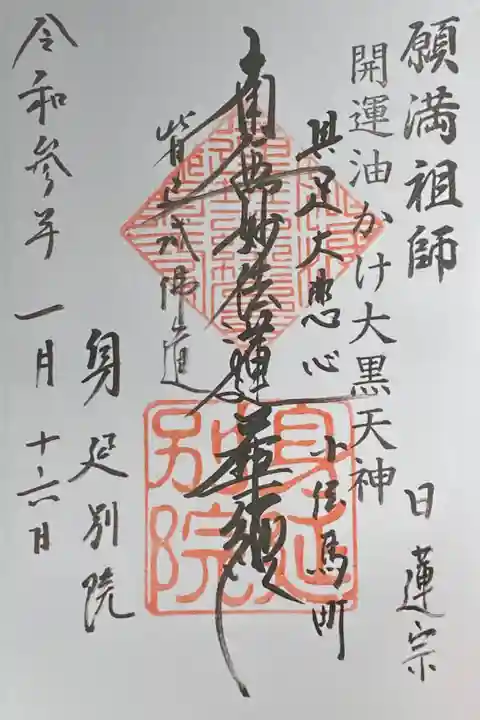 願満祖師
日蓮宗
開運油かけ大黒天神
具足大悲心
小伝馬町
南無妙法蓮華経
皆已成佛道
身延別院
令和参年 一月 十六日
身延
別院